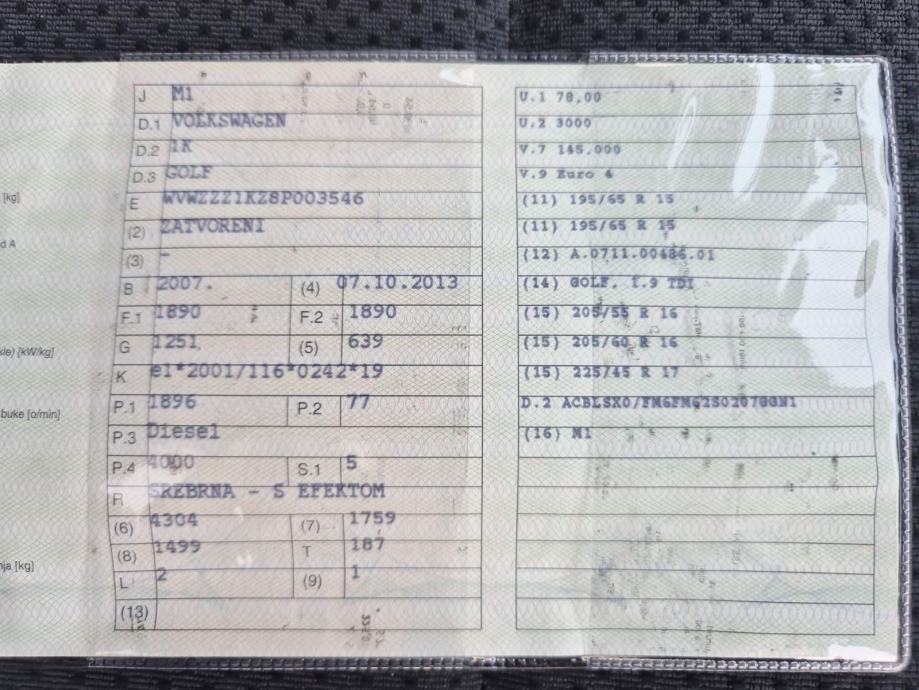 J M1
D.1 VOLKSWAGEN
D.2 1K
D.3 GOLF
[kg]
E WVWZZZ1KZ8P003546
(2) ZATVORENI
d A
(3) -
B 2007. (4) 07.10.2013
F.1 1890 F.2 1890
G 1251 (5) 639
kle) [kW/kg]
K e1*2001/116*0242*19
P.1 1896 P.2 77
buke [o/min]
P.3 Diesel
P.4 4000 S.1 5
R SREBRNA - S EFEKTOM
(6) 4304 (7) 1759
(8) 1499 T 187
nja [kg]
L 2 (9) 1
(13)
U.1 78,00
U.2 3000
V.7 145,000
V.9 Euro 4
(11) 195/65 R 15
(11) 195/65 R 15
(12) A.0711.00486.01
(14) GOLF, 1.9 TDI
(15) 205/55 R 16
(15) 205/60 R 16
(15) 225/45 R 17
D.2
(16) M1